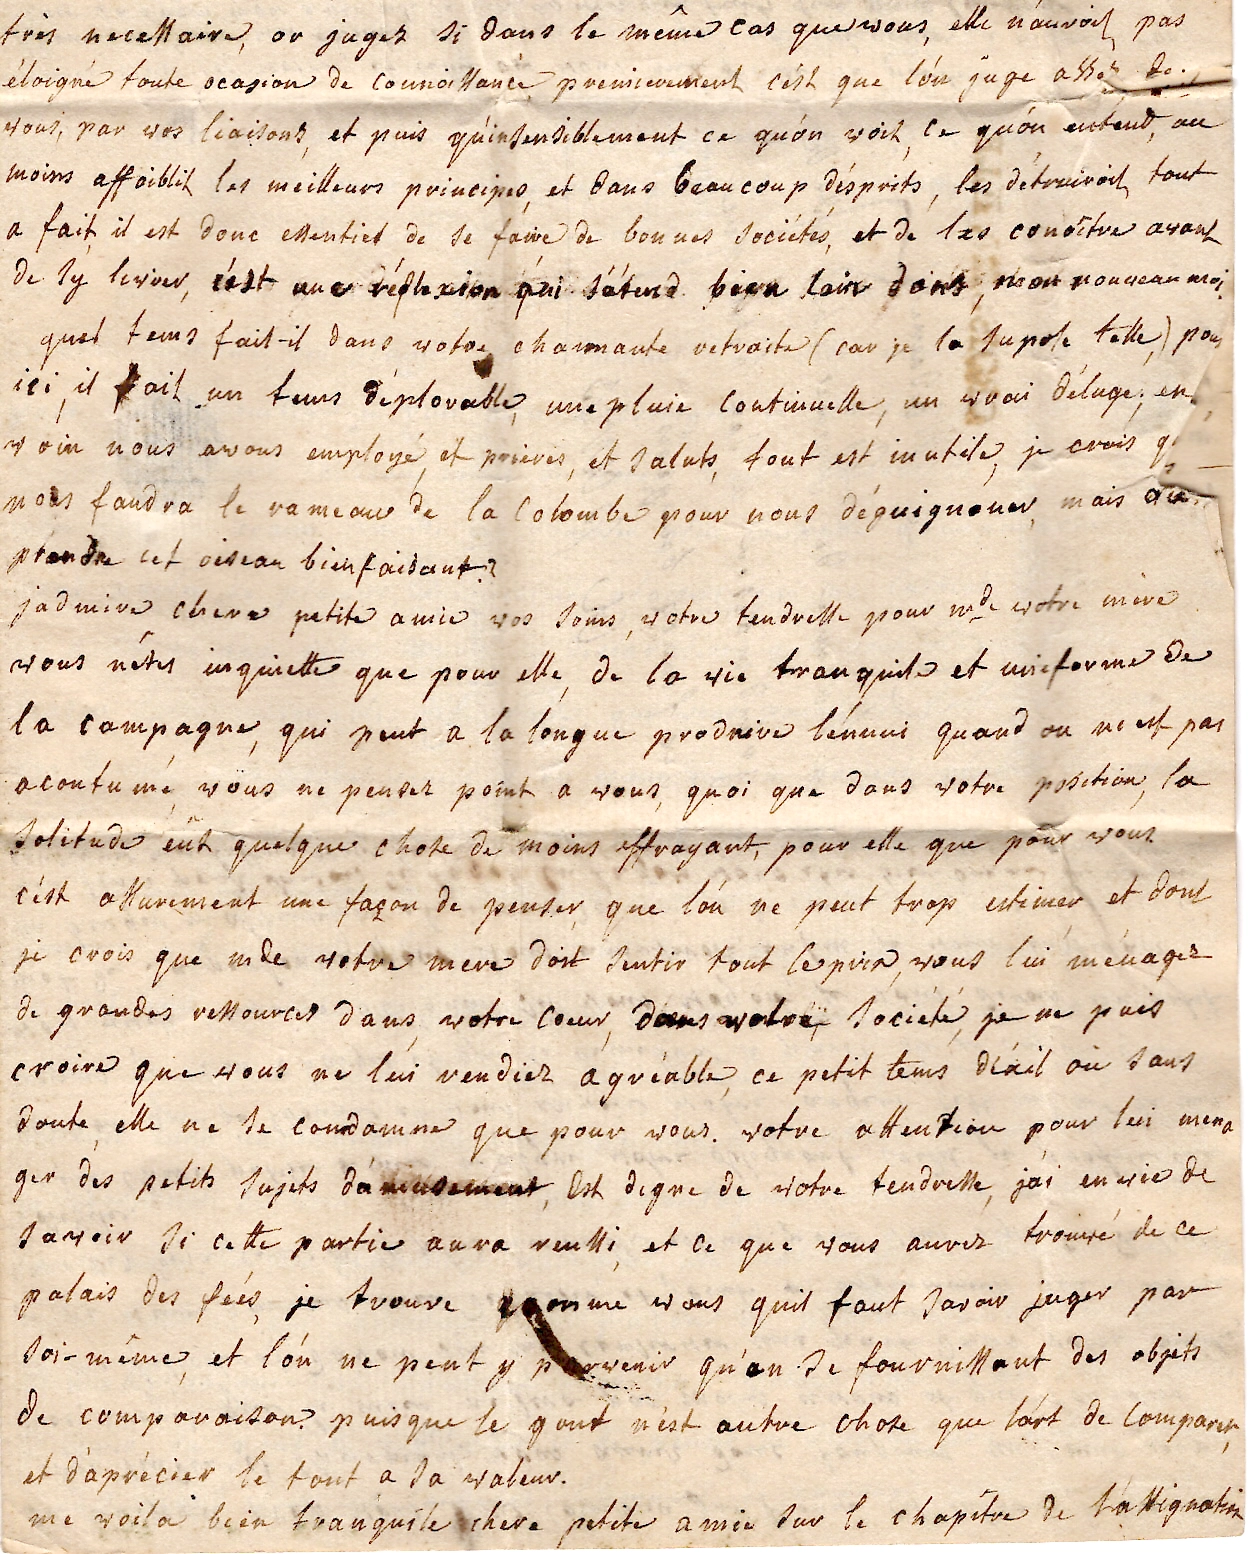 très necessaire, or jugez si dans le même cas que vous, elle n'auroit pas
éloigné toute ocasion de connoissance, premierement c'ést que lón juge assés de
vous, par vos liaisons, et puis qu'insensiblement ce quón voit, ce quón entend, au
moins affoiblit les meilleurs principes, et dans beaucoup désprits, les détruiroit tout
a fait, il est donc essentiel de se faire de bonnes sociétés, et de les conoître avant
de s'y livrer, c'est une réflexion qui s'étend bien loin dans, mon nouveau moi.
quel tems fait-il dans votre charmante retraite (car je la supose telle,) pour
ici, il fait un tems déplorable, une pluie continuelle, un vrai déluge; en
vain nous avons employé, et prieres, et saluts, tout est inutile, je crois q
nous faudra le rameau de la Colombe pour nous déguignoner, mais ou
prendre cet oiseau bienfaisant?
j'admire chere petite amie vos soins, votre tendresse pour mde votre mère
vous n'êtes inquiette que pour elle, de la vie tranquile et uniforme de
la campagne, qui peut a la longue produire l'énnui quand on ne est pas
acoutumé, vous ne pensez point a vous, quoi que dans votre position, la
solitude eût quelque chose de moins effrayant, pour elle que pour vous.
c'ést assurement une façon de penser, que lón ne peut trop estimer et dont
je crois que mde votre mere doit sentir tout le prix, vous lui ménagez
de grandes ressources dans votre coeur, dans votre société, je ne puis
croire que vous ne lui rendiez agréable, ce petit tems déxil où sans
doute, elle ne se condamne que pour vous. votre attention pour lui mena
ger des petits sujets d'amusement, est digne de votre tendresse, j'ai envie de
savoir si cette partie aura reussi, et ce que vous aurez trouvé de ce
palais des feés, je trouve comme vous quil faut savoir juger par
soi-même, et lón ne peut y parvenir qu'en se fournissant des objets
de comparaison, puisque le gout n'est autre chose que lárt de comparer,
et d'aprécier le tout a sa valeur.
me voila bien tranquile chere petite amie sur le chapitre de l'assignation